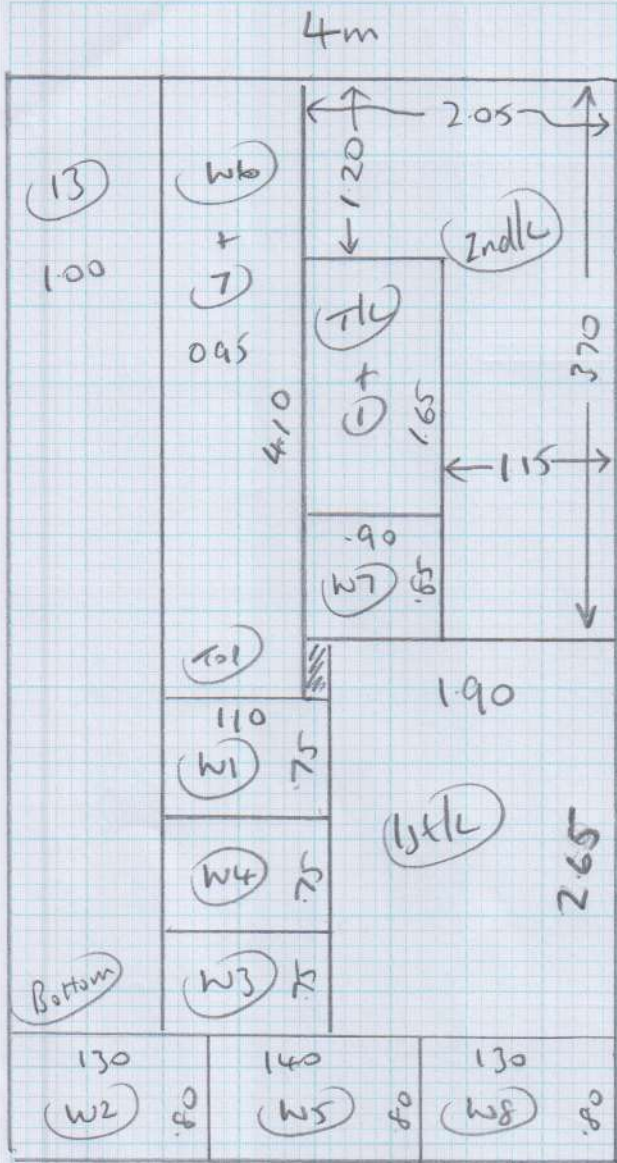 4m
13
1.00
W6
+
7
095
Top
4.10
1.20
2.05
2nd/L
3.70
T/L
+
1
1.65
1.15
.90
W7
.85
110
W1
.75
W4
.75
W3
.75
1.90
1st/L
2.65
Bottom
130
W2
.80
140
W5
.80
130
W8
.80